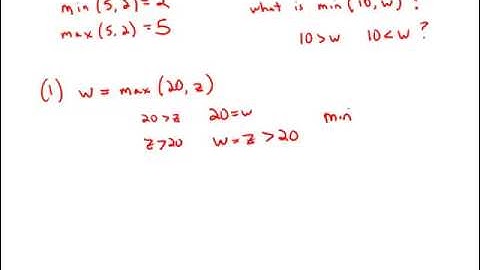 min (5, 2) = 2
what is min (10, w) ?
max (5, 2) = 5
10 > w 10 < w ?
(1) w = max (20, z)
20 > z 20 = w min
z > 20 w = z > 20